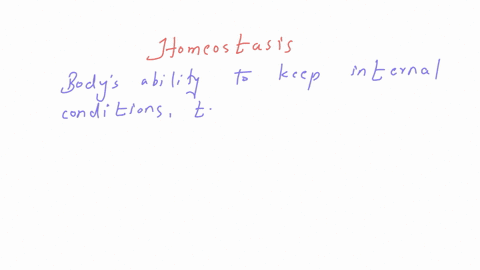 Homeostasis
Body's ability to keep internal
conditions, t.